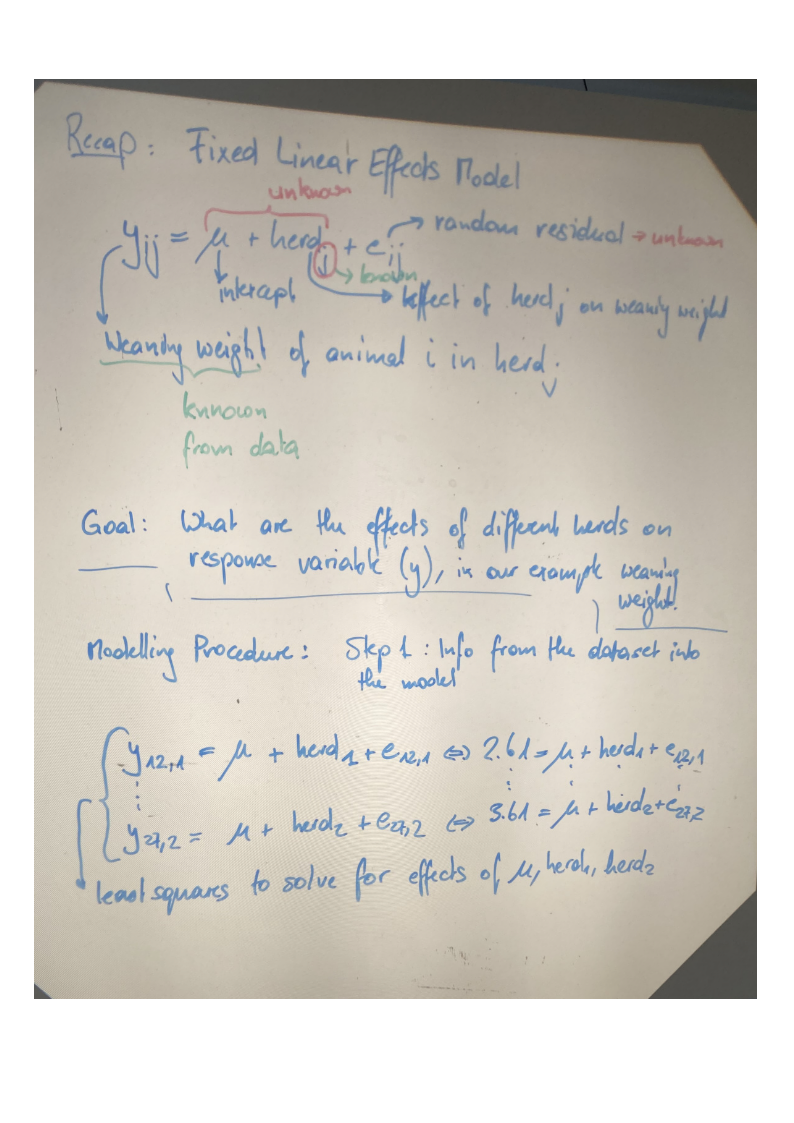 Recap: Fixed Linear Effects Model
unknown
yij = μ + herdj + eij → random residual → unknown
→ known
intercept
effect of herdj on weaning weight
Weaning weight of animal i in herdj
knnown
from data
Goal: What are the effects of different herds on
response variable (y), in our example weaning
weight.
Modelling Procedure: Step 1: Info from the dataset into
the model
y12,1 = μ + herd1 + e12,1 ⇔ 2.61 = μ + herd1 + e12,1
y27,2 = μ + herd2 + e27,2 ⇔ 3.61 = μ + herd2 + e27,2
least squares to solve for effects of μ, herd1, herd2